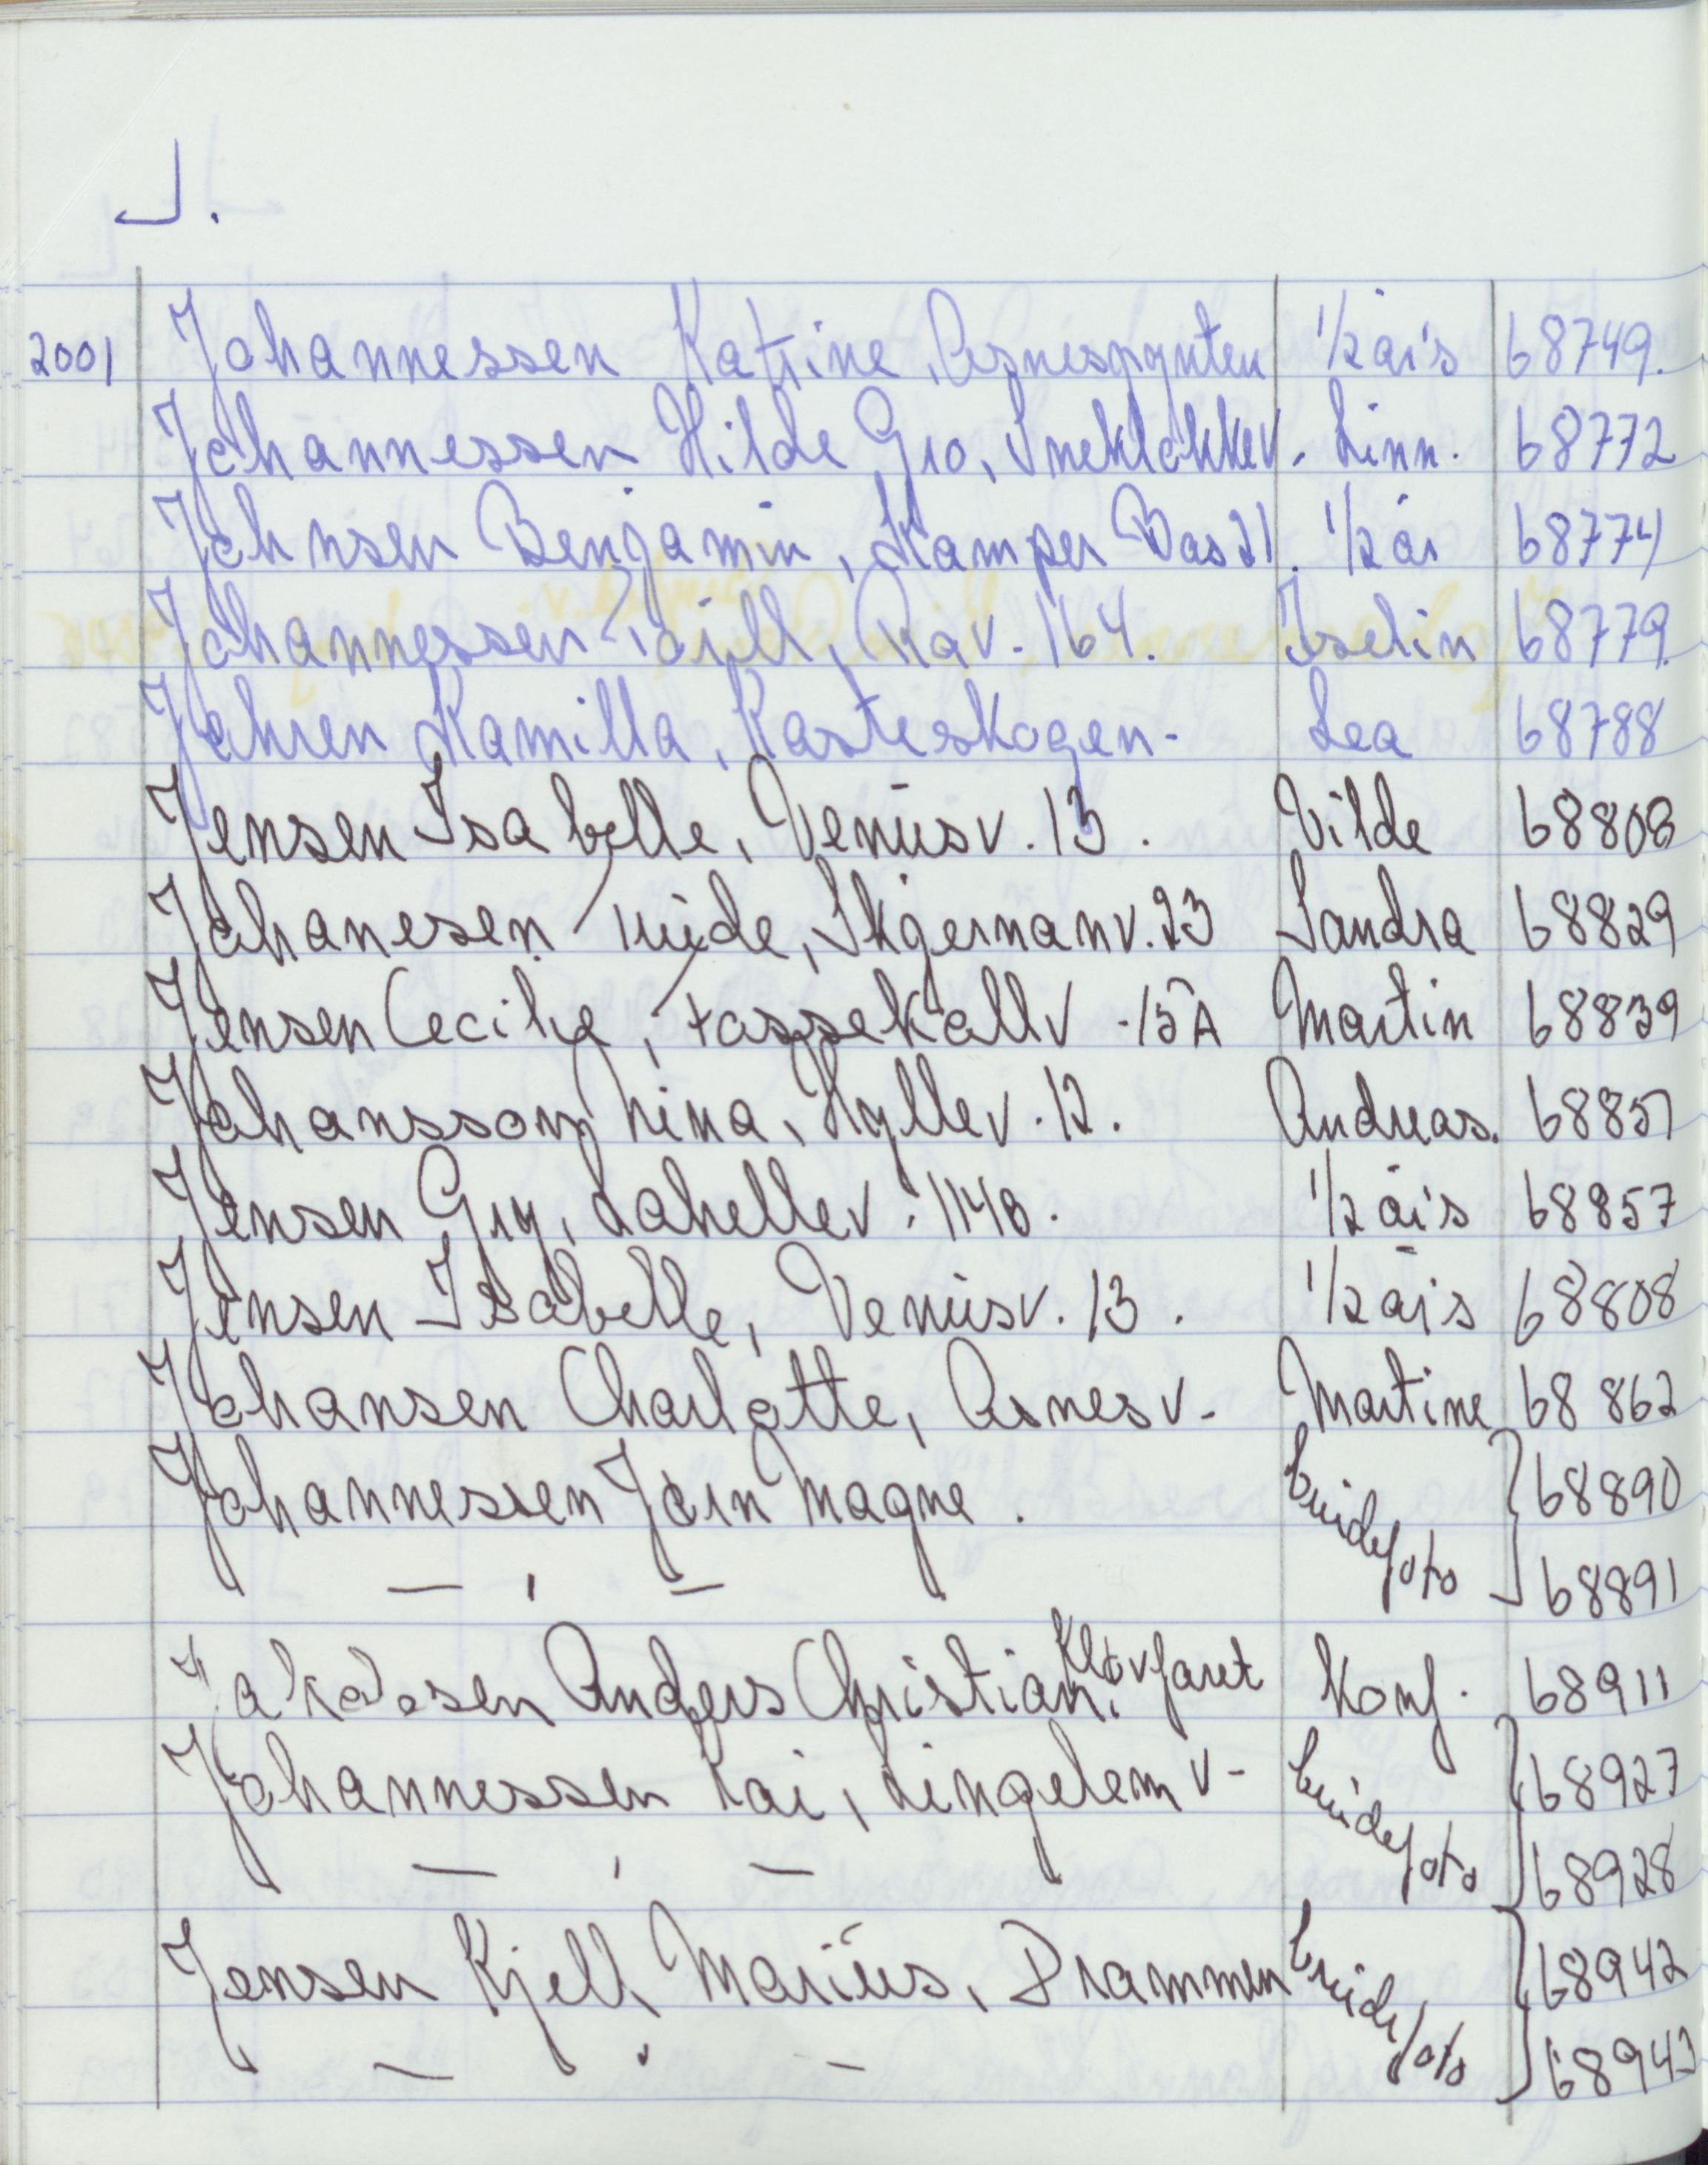 J.
2001 Johannessen Katrine, Åsnespynten 1/2 års 68749.
Johannessen Hilde Gro, Sneklokkev. Linn. 68772
Johnsen Benjamin, Kamper Bas 21. 1/2 år 68774
Johannessen Toril, 164. Iselin 68779.
Jahren Kamilla, Rasteskogen. Lea 68788
Jensen Isabelle, Venusv. 13. Vilde 68808
Johanesen Trude, Skjernanv. 23 Sandra 68829
Jensen Cecilie, Fossekallv. 15A Martin 68839
Johansson Nina, Hyllev. 12. Andreas. 68851
Jensen Gry, Lahellev. 114B. 1/2 års 68857
Jensen Isabelle, Venusv. 13. 1/2 års 68808
Johansen Charlotte, Åsnesv. Martine 68 862
Johannessen Jørn Magne. brudefoto 68890
— , — 68891
Jakobsen Anders Christian, Kløvfaret Konf. 68911
Johannessen Kai, Lingelemv. brudefoto 68927
— , — 68928
Jensen Kjell Marius, Drammen brudefoto 68942
— , — 68943